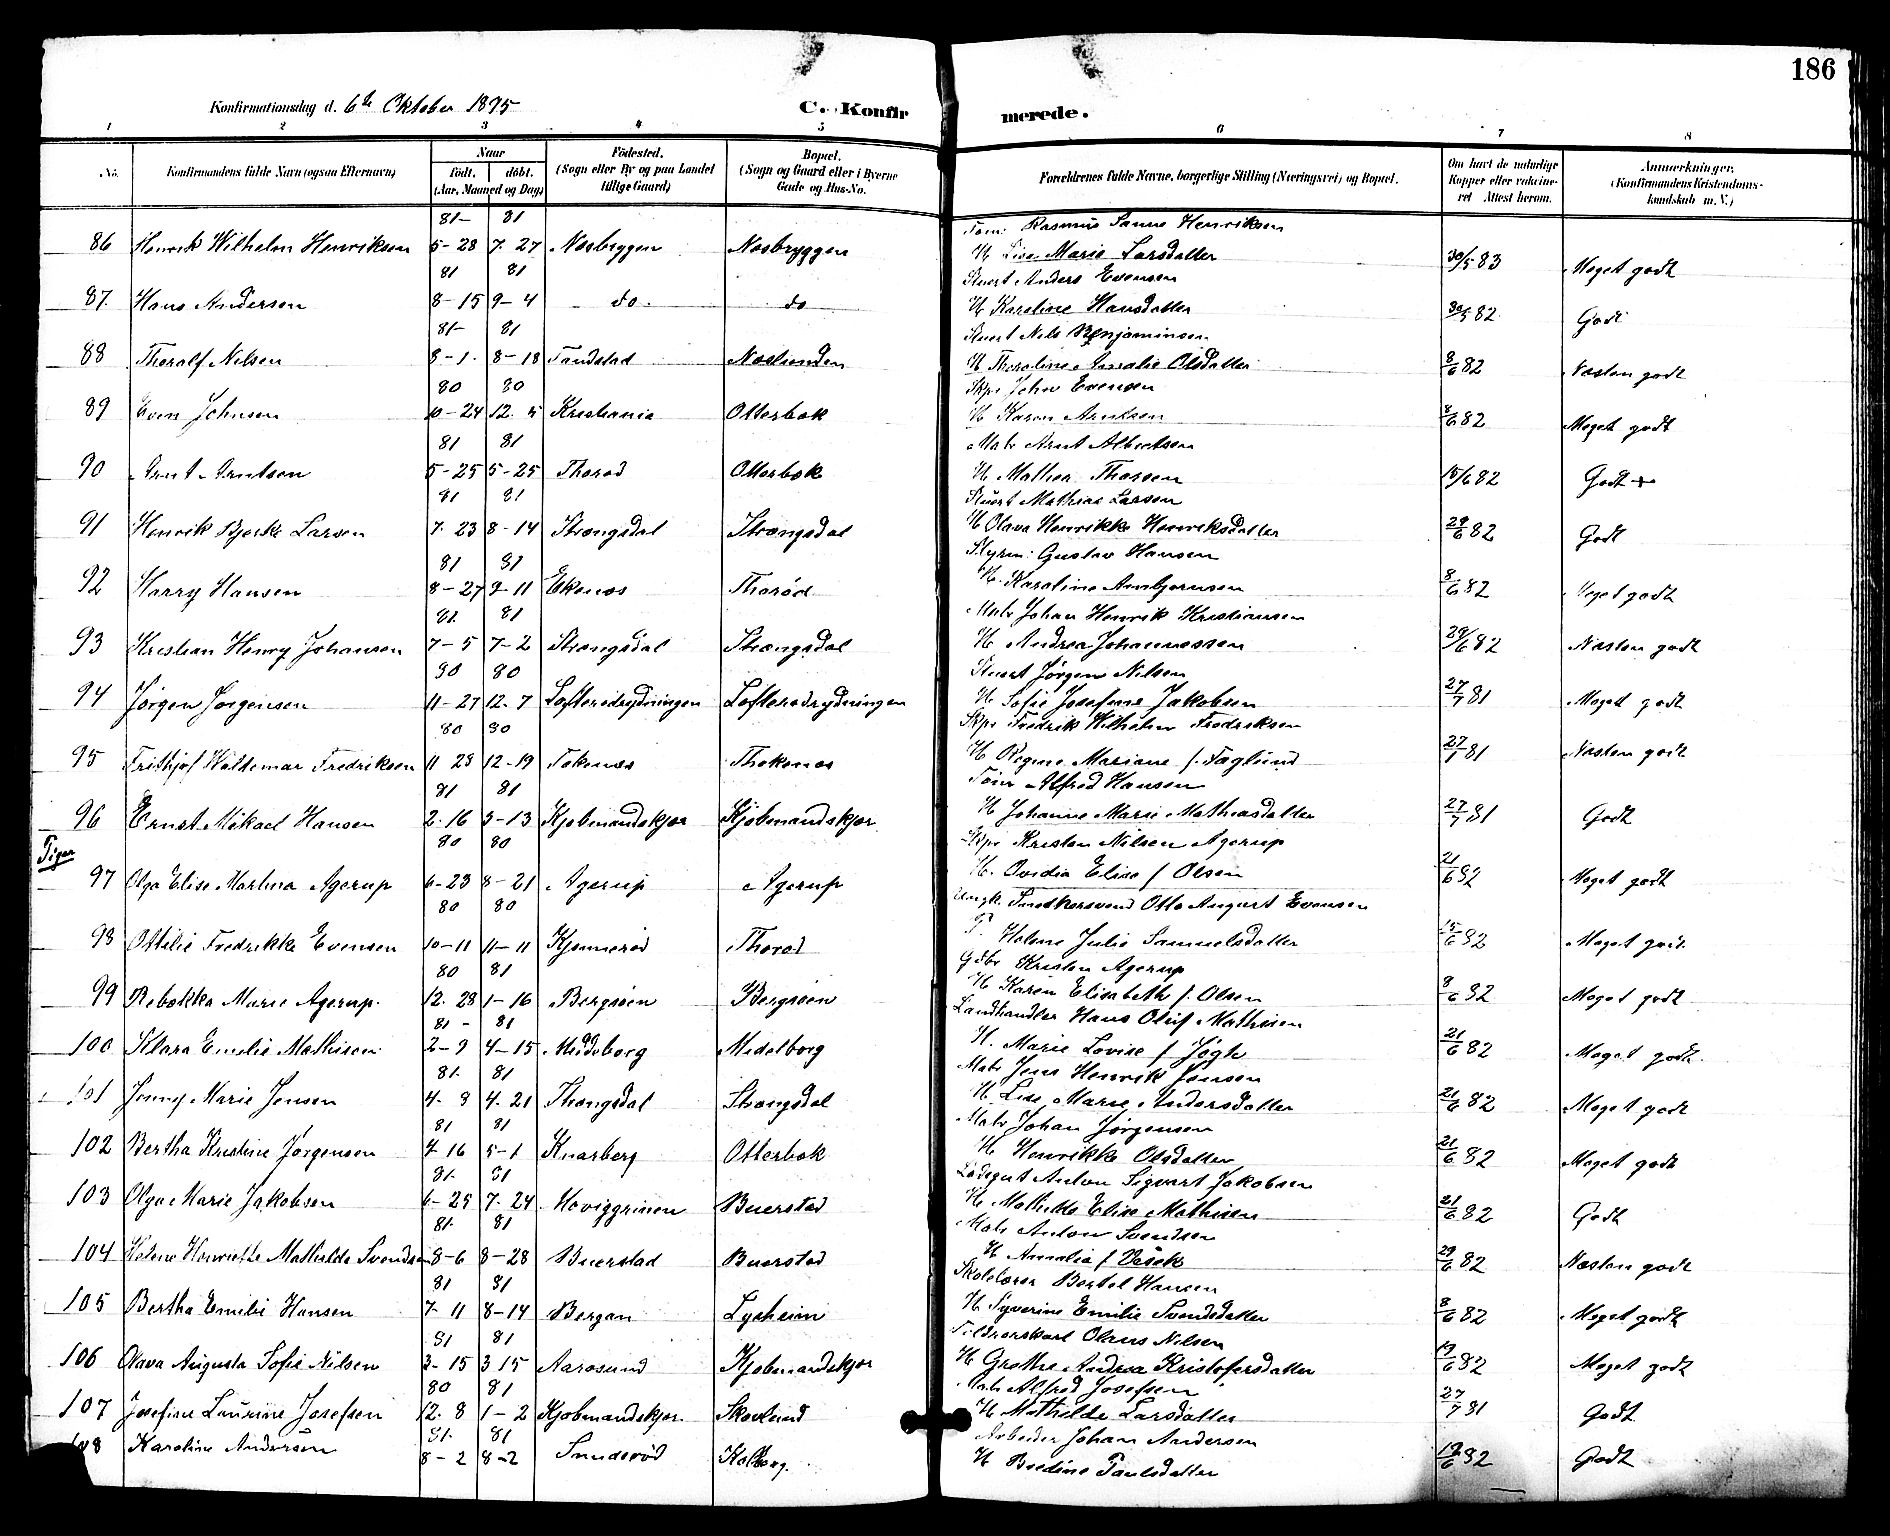 186
Konfirmationsdag d. 6te Oktober 1895
C. Konfirmerede.
1 2 3 4 5 6 7 8
No. Konfirmandens fulde Navn (ogsaa Efternavn) Naar födt. döbt. (Aar, Maaned og Dag) Födested. (Sogn eller By og paa Landet tillige Gaard) Bopæl. (Sogn og Gaard eller i Byerne Gade og Hus-No. Forældrenes fulde Navne, borgerlige Stilling (Næringsvei) og Bopæl. Om havt de naturlige Kopper eller vaccineret Attest herom. Anmærkninger. (Konfirmandens Kristendomskundskab m. V.)
81- 81 Tøm. Rasmus Sanne Henriksen
86 Henrik Wilhelm Henriksen 5-28 7-27 Nesbryggen Nesbryggen H Lise Marie Larsdatter 30/5 83 Meget godt
81 81 Stuert Anders Evensen
87 Hans Andersen 8-15 9-4 do do H Karoline Hansdatter 30/5 82 Godt
81- 81 Stuert Nils Benjaminsen
88 Thoralf Nilsen 8-1 8-18 Tandstad Neslunden H Thoraline Amalie Olsdatter 8/6 82 Næsten godt
80 80 Skps John Evensen
89 Even Johnsen 10-24 12-5 Kristiania Otterbæk H Karen Arntsen 8/6 82 Meget godt
81 81 Matr Arnt Albertsen
90 Arnt Arntsen 5-25 5-25 Thorød Otterbæk H Mathea Thorsen 15/6 82 Godt +
81 81 Stuert Mathias Larsen
91 Henrik Bjerke Larsen 7-23 8-14 Strengsdal Strengsdal H Olava Henrikke Henriksdatter 29/6 82 Godt
81 81 Styrm. Gustav Hansen
92 Harry Hansen 8-27 9-11 Ekenes Thorød H. Karoline Ambjørnsen 8/6 82 Meget godt
81 81 Matr Johan Henrik Kristiansen
93 Kristian Henry Johansen 7-5 7-2 Strengsdal Strengsdal H Andrea Johannessen 29/6 82 Næsten godt
80 80 Stuert Jørgen Nilsen
94 Jørgen Jørgensen 11-27 12-7 Lofterødrydningen Lofterødrydningen H Sofie Josefine Jakobsen 27/7 81 Meget godt
80 80 Skps Fredrik Wilhelm Fredriksen
95 Frithjof Waldemar Fredriksen 11 28 12-19 Tokenes Thokenes H Regine Mariane f. Faglund 27/7 81 Næsten godt
81 81 Tøm Alfred Hansen
96 Ernst Mikael Hansen 2-16 3-13 Kjøbmandskjær Kjøbmandskjær H Johanne Marie Mathiasdatter 27/7 81 Godt
Piger
80 80 Skps Kristen Nilsen Agerup
97 Olga Elise Martina Agerup 6-23 8-21 Agerup Agerup H. Ovidia Elise f Olsen 21/6 82 Meget godt
80 80 Ungk. Snedkersvend Otto August Evensen
98 Ottilie Fredrikke Evensen 10-11 11-11 Kjønnerød Thorød P. Helene Julie Samuelsdatter 15/6 82 Meget godt
80 81 Gdbr Kristen Agerup
99 Rebekka Marie Agerup 12-28 1-16 Bergsøen Bergsøen H Karen Elisabeth f. Olsen 8/6 82 Meget godt
81- 81 Landhandler Hans Oluf Mathisen
100 Klara Emelie Mathisen 2-9 4-15 Meddelborg Medelborg H. Marie Lovise f Jøgh 21/6 82 Meget godt.
81 81 Matr Jens Henrik Jensen
101 Jenny Marie Jensen 4-8 4-21 Strengsdal Strengsdal H. Lise Marie Andersdatter 21/6 82 Meget godt
81 81 Matr Johan Jørgensen
102 Bertha Kristine Jørgensen 4-16 5-1 Knarberg Otterbæk H Henrikke Olsdatter 21/6 82 Meget godt
81 81 Lodsgut Anton Sigvart Jakobsen
103 Olga Marie Jakobsen 6-25 7-24 Høviggrinen Buerstad H Mathilde Elise Mathisen 21/6 82 Godt
81 81 Matr Anton Svendsen
104 Helene Henriette Mathilde Svendsen 8-6 8-28 Buerstad Buerstad H Amalia f 29/6 82 Næsten godt
81 81 Skolelærer Bertel Hansen
105 Bertha Emilie Hansen 7-11 8-14 Bergan Lysheim H Syverine Emilie Svendsdatter 8/6 82 Meget godt
81 81 Olaus Nilsen
106 Olava Augusta Sofie Nilsen 3-15 3 15 Aarøsund Kjøbmandskjær H Grethe Andrea Kristofersdatter 19/6 82 Meget godt
80 81 Matr Alfred Josefsen
107 Josefine Laurine Josefsen 12-8 1-2 Kjøbmandskjær Skovlund H Mathilde Larsdatter 27/7 81 Godt
81 81 Arbeider Johan Andersen
108 Karoline Andersen 8-2 8-2 Smidsrød Kolberg. H Bredine Paulsdatter 19/6 82 Godt